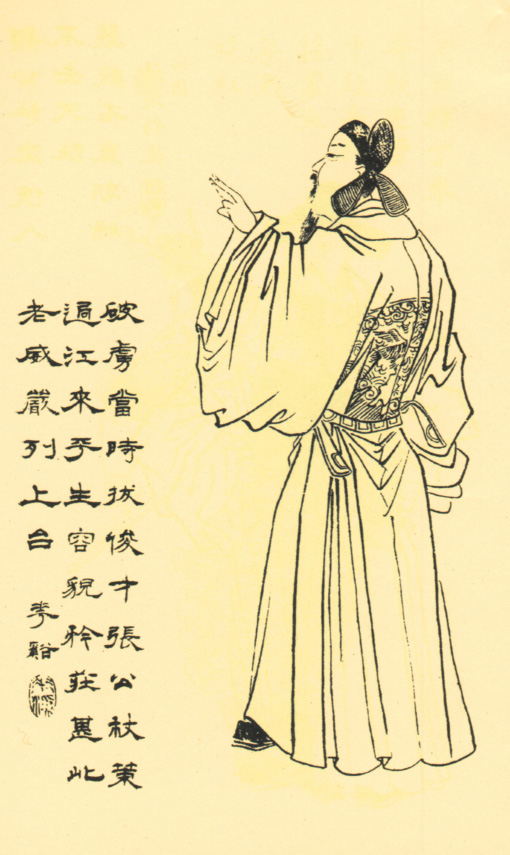 破虜當時拔俊才張公杖策
過江來平生容貌矜莊甚此
老威嚴列上台
谿